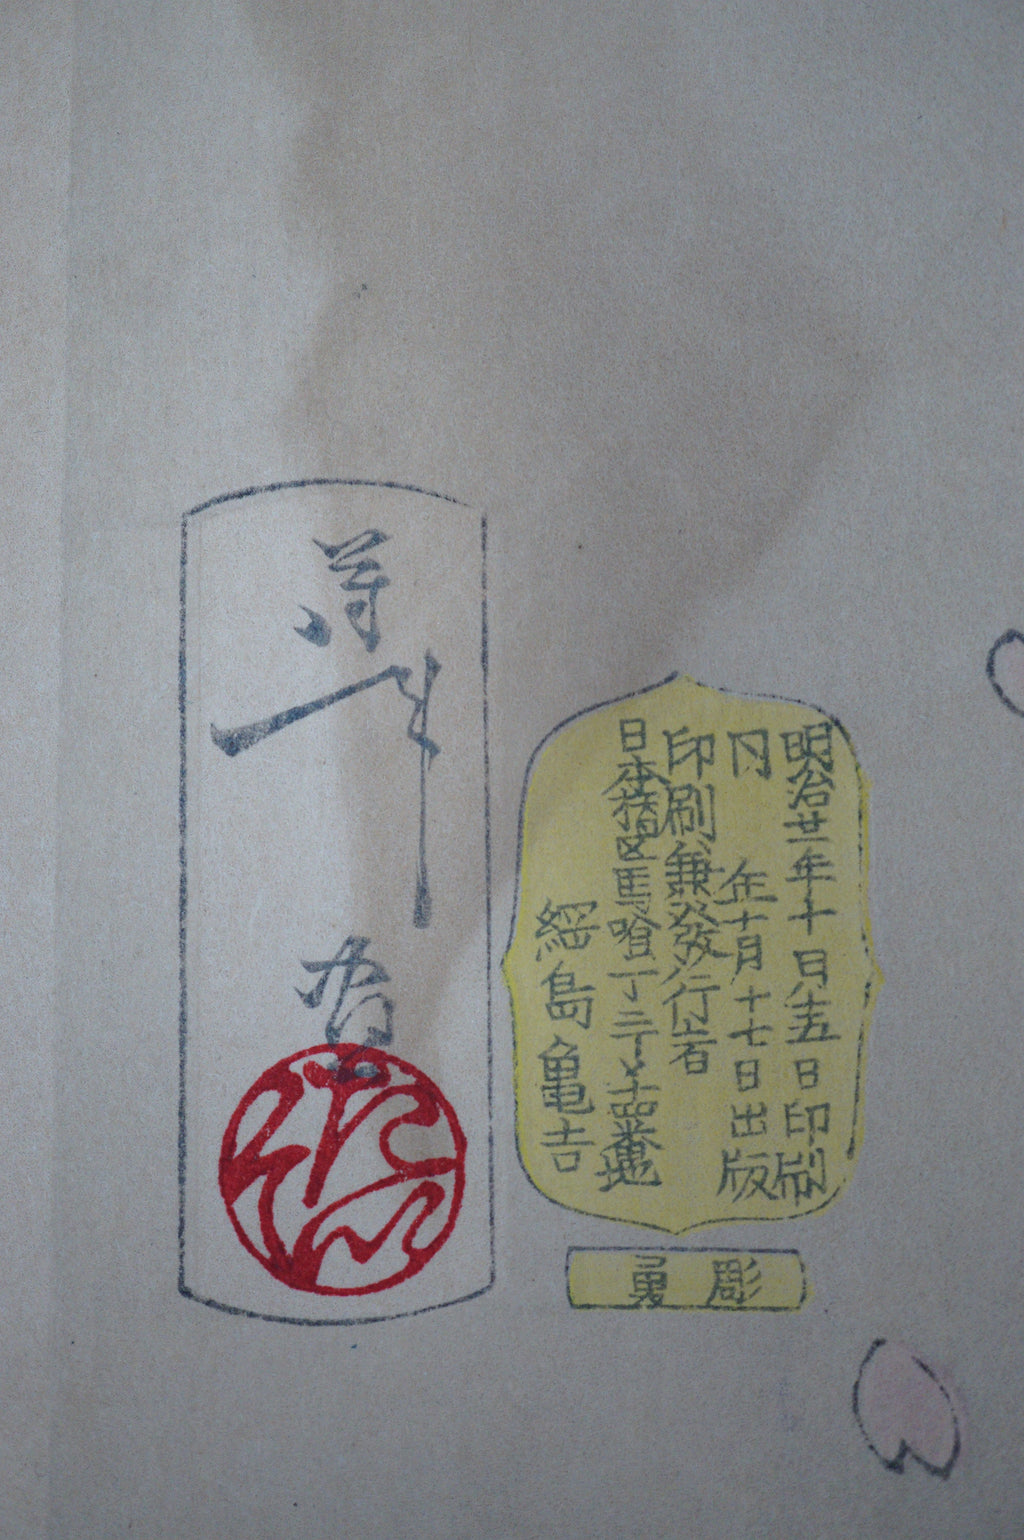 明治廿一年十月十五日印刷
同年十月十七日出版
印刷兼発行者
日本橋区馬喰丁二丁メ十四番地
綱島亀吉
彫勇